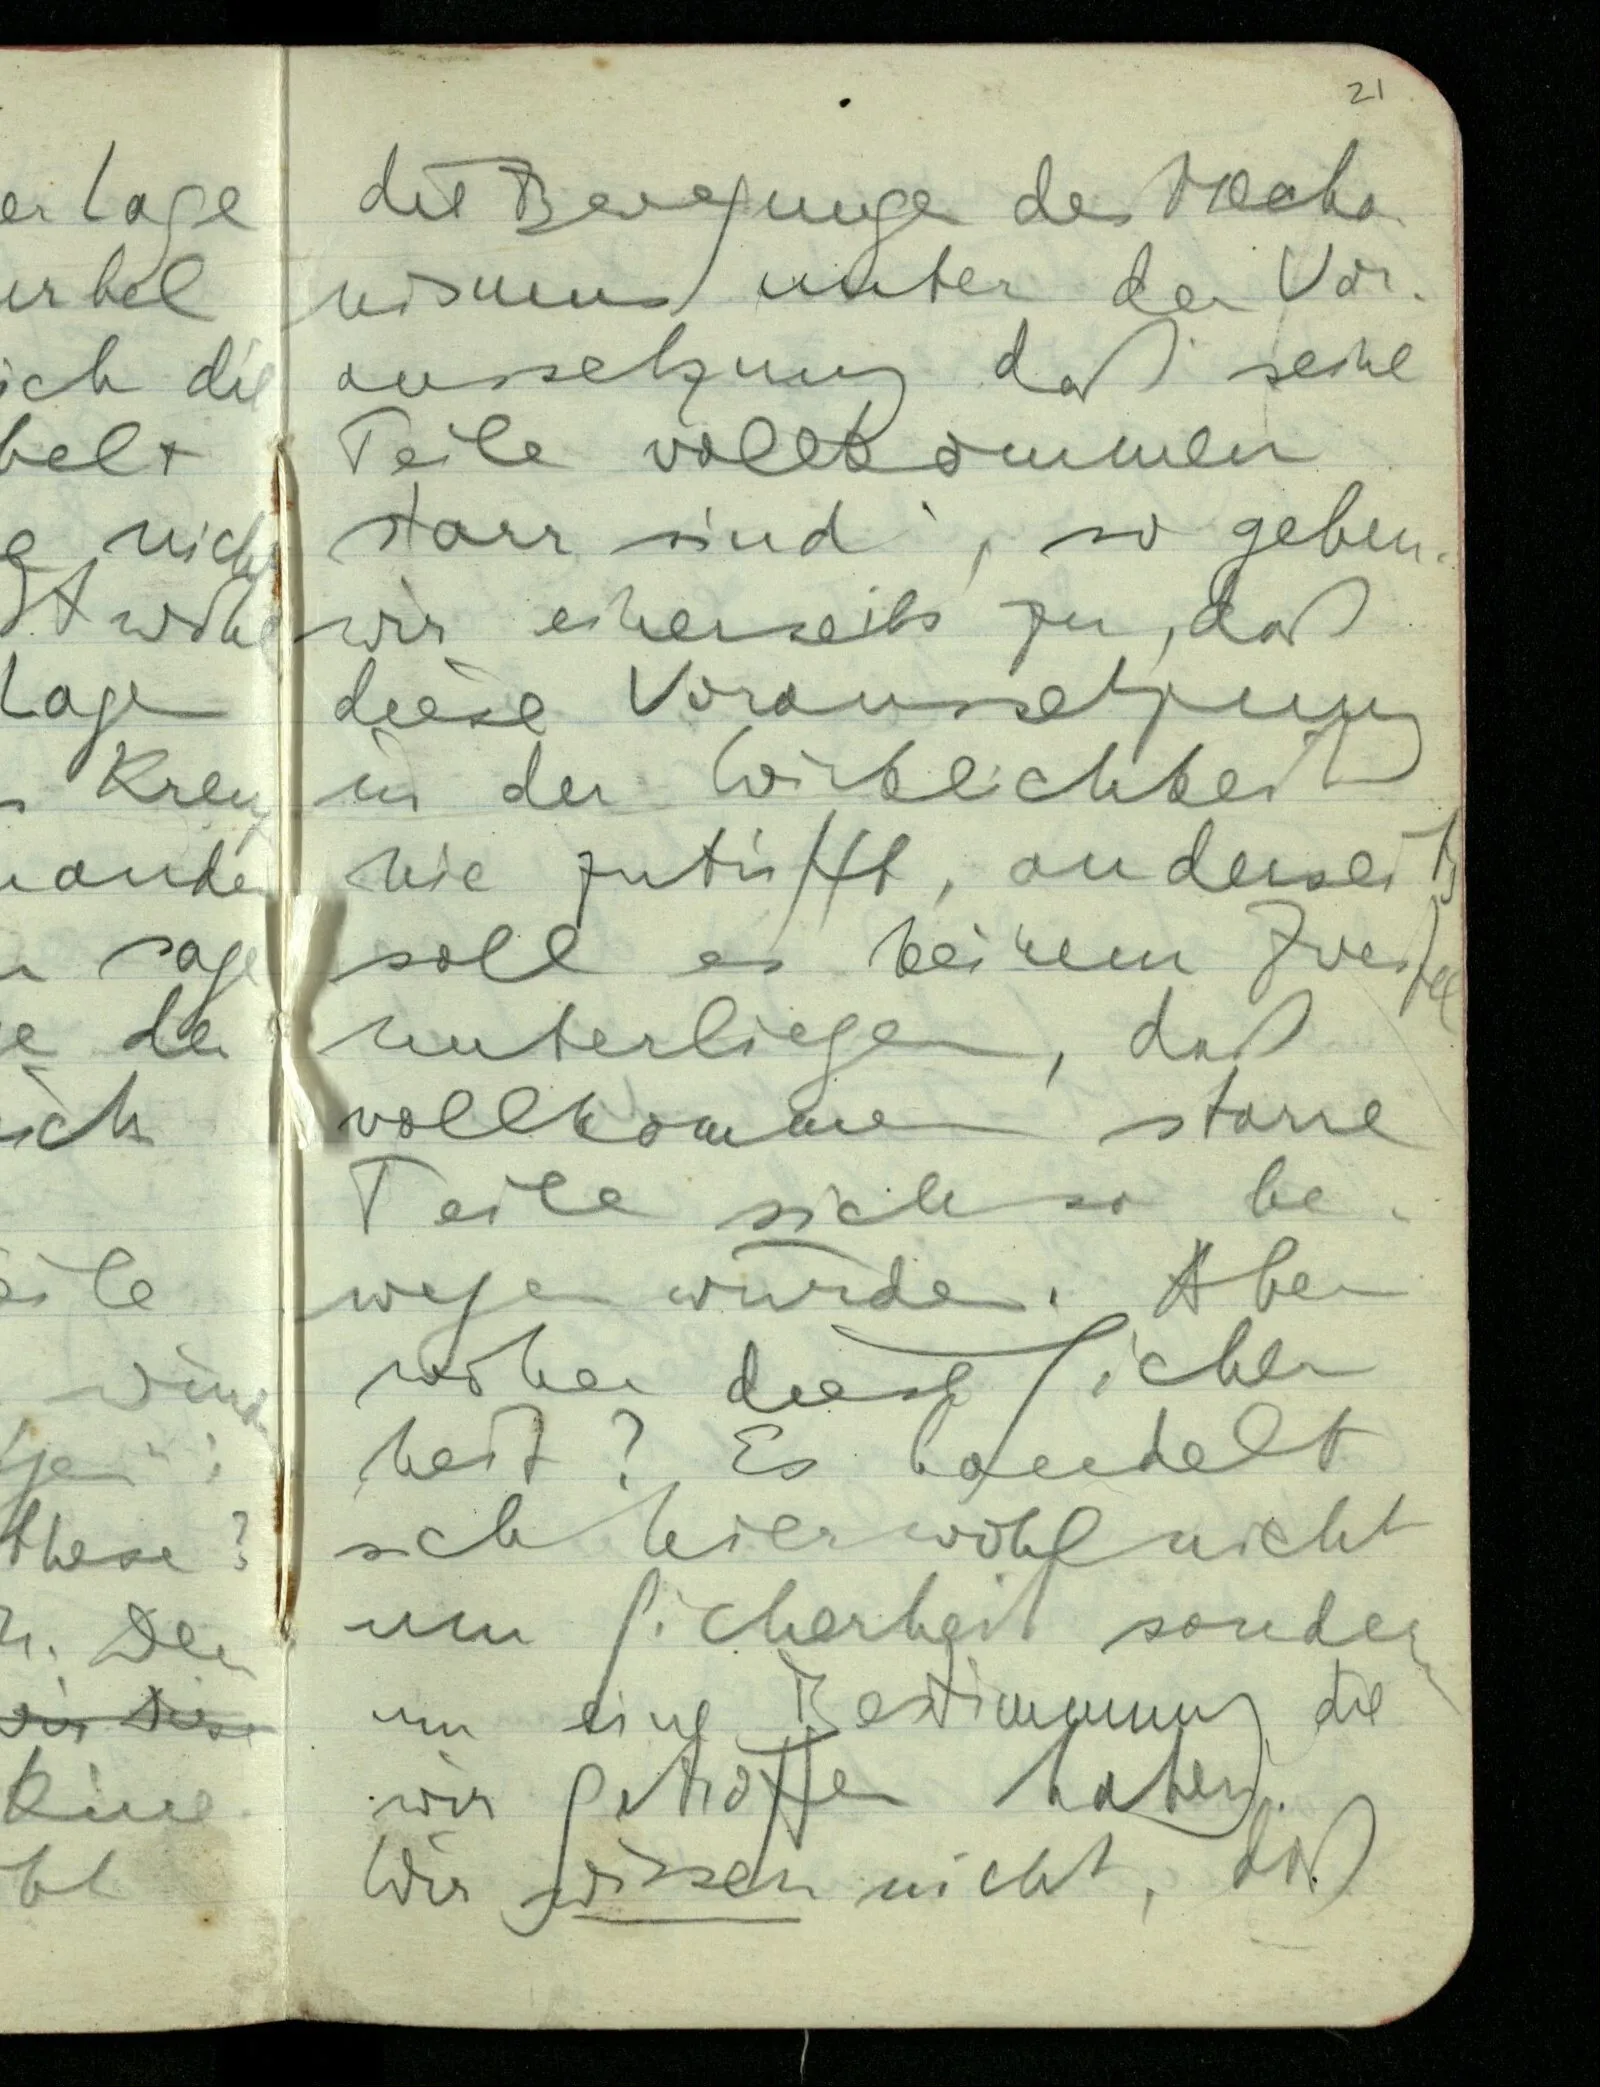 21
er Lage
urbel
ich die
belt
e nich
wohl
Lage
s Kreuz
nander
n sage
e der
sich
eile
würd
gen":
these?
n. Den
wir diese
keine
die Bewegungen des Mecha-
nismus unter der Vor-
aussetzung daß seine
Teile vollkommen
starr sind, so geben
wir einerseits zu, daß
diese Voraussetzung
in der Wirklichkeit
nie zutrifft, anderseits
soll es keinem Zweifel
unterliegen, daß
vollkommen starre
Teile sich so be-
wegen würden. Aber
woher diese Sicher
heit? Es handelt
sich hier wohl nicht
um Sicherheit sondern
um eine Bestimmung die
wir getroffen haben.
Wir wissen nicht, daß